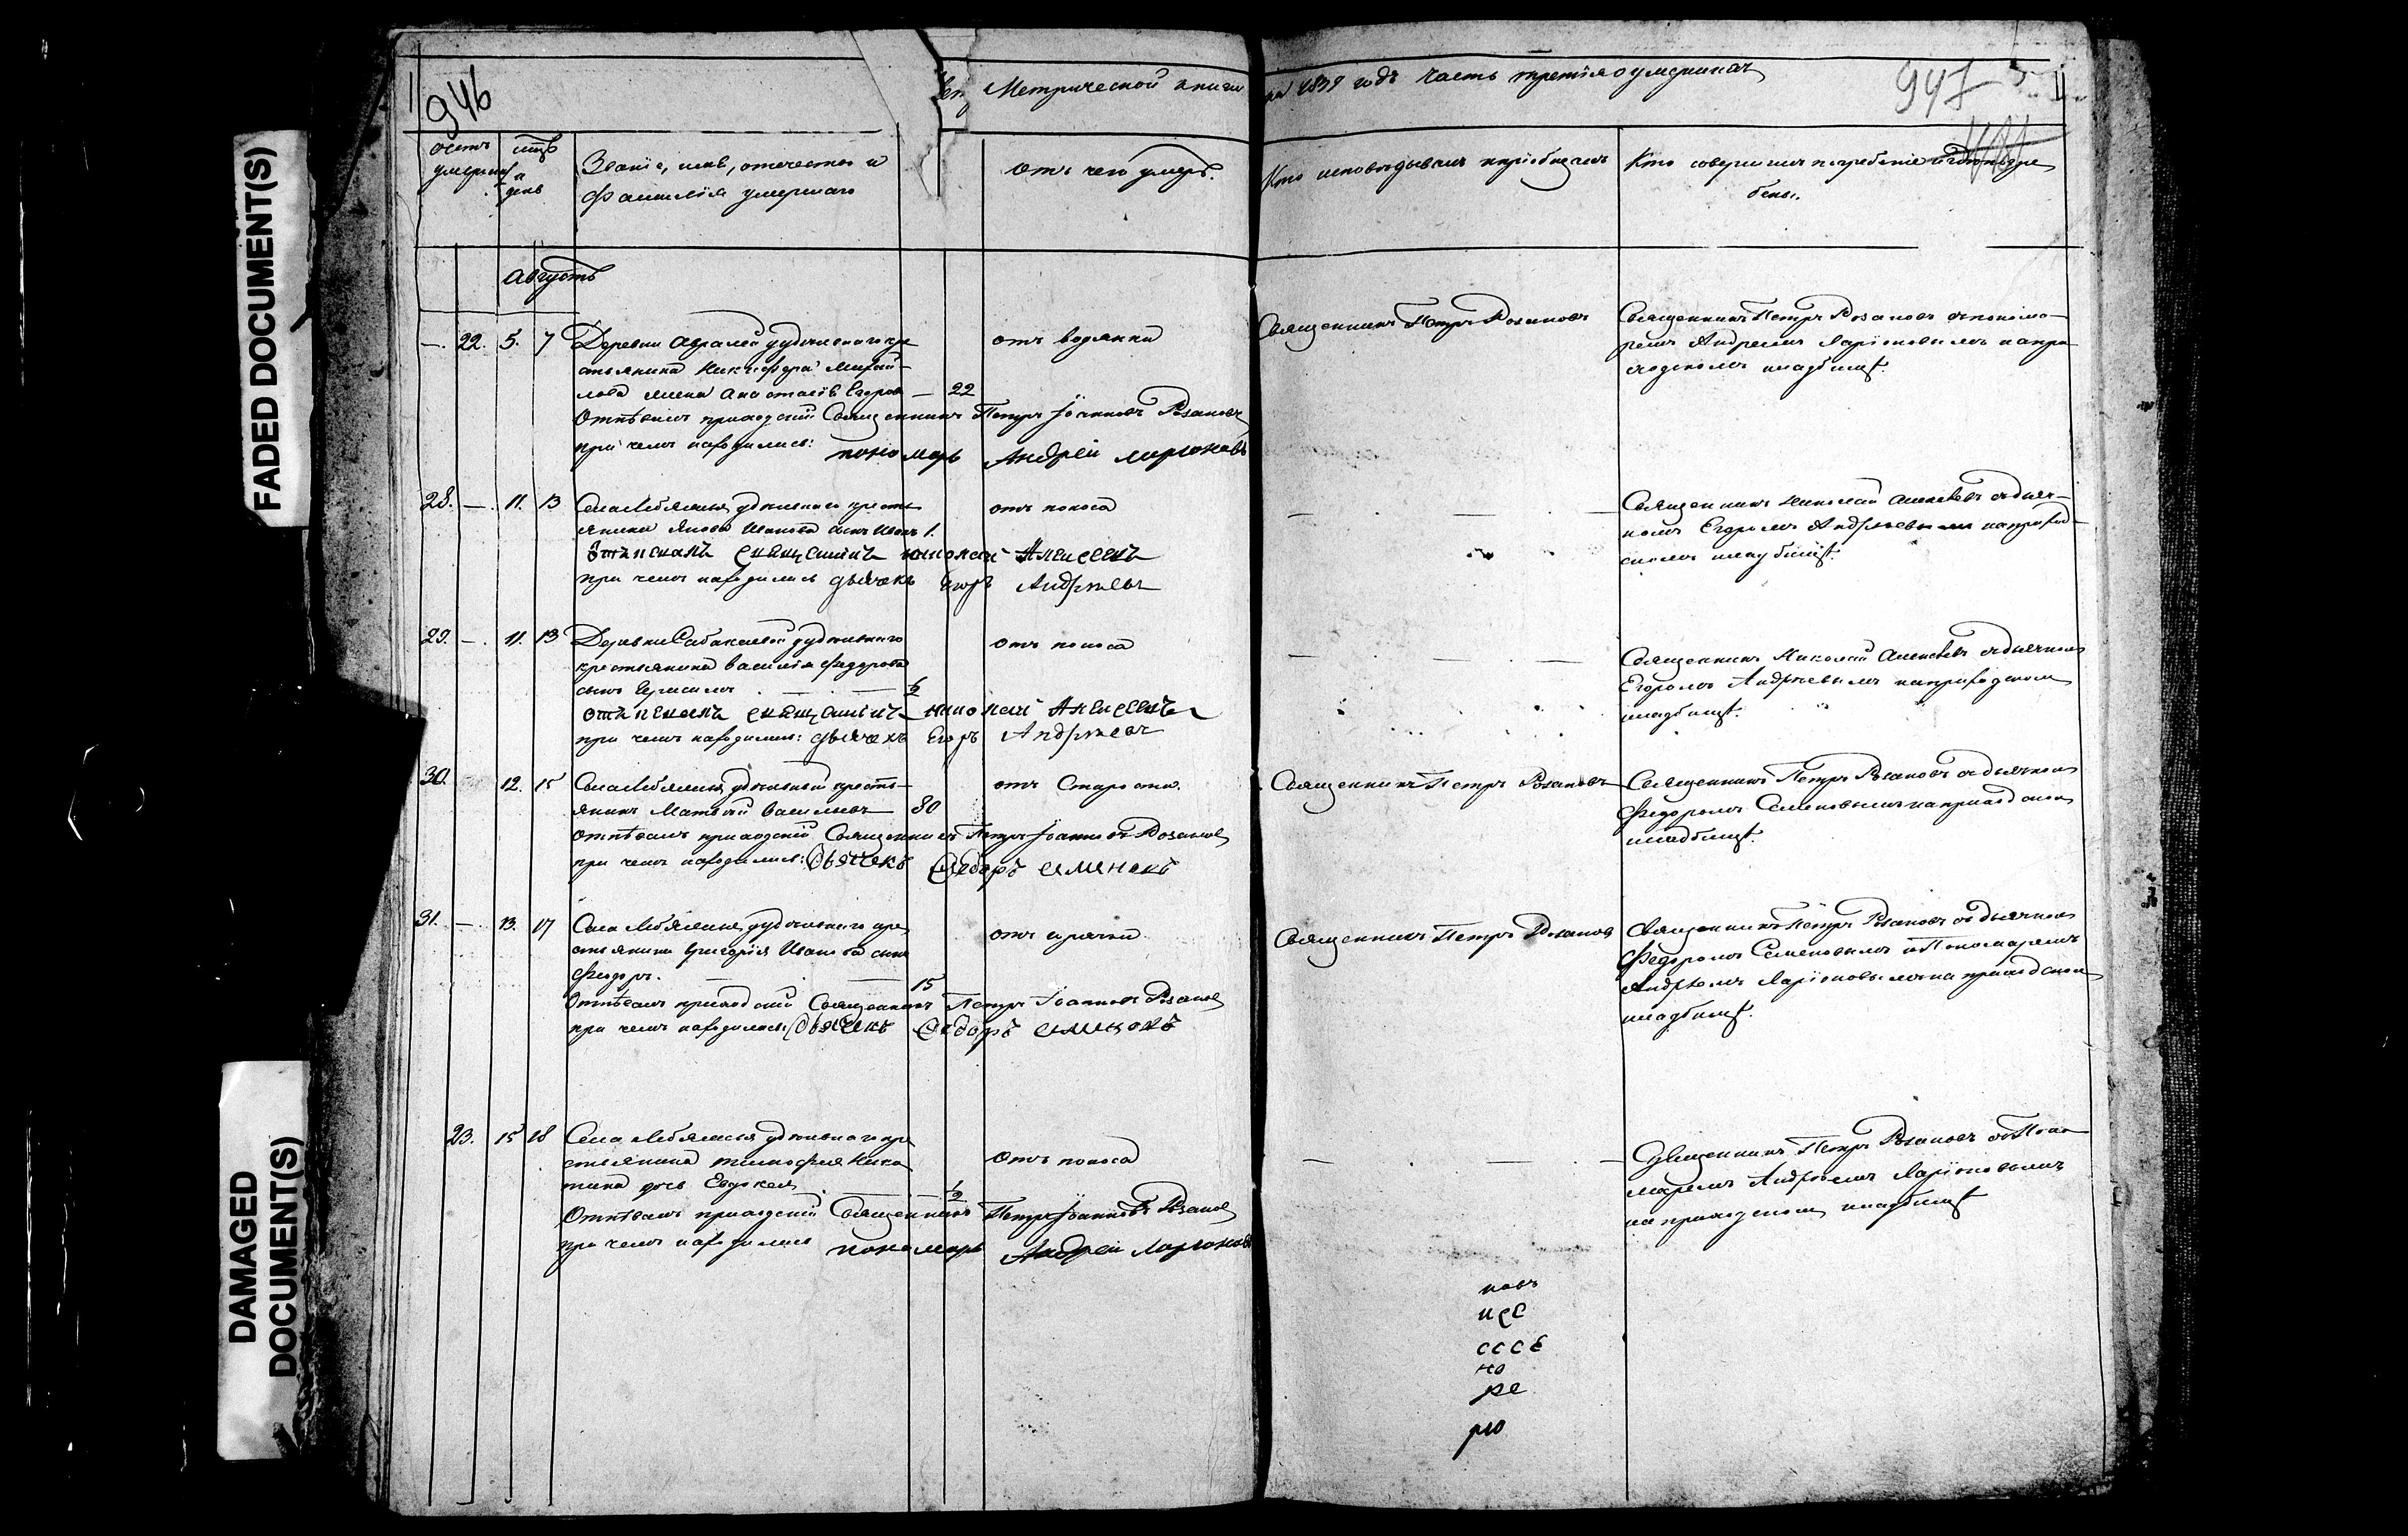 FADED DOCUMENT(S)
DAMAGED
DOCUMENT(S)
946
Метрической книги на 1839 годъ часть третія о умершихъ
947
умершихъ
и
день
Званіе, имя, отечество и
фамилія умершаго
отъ чего умеръ.
Кто исповѣдывалъ и пріобщалъ
Кто совершилъ погребеніе и гдѣ погре
бены.
Августъ
22. 5. 7 Деревни удѣльнаго кре
стьянина Никифора Михай-
лова жена Анастасія Егорова — 22
отъ водянки
Отпѣвалъ приходскій Священникъ Петръ Іоанновъ Розановъ
при чемъ находились: пономарь Андрей Ларіоновъ
Священникъ Петръ Розановъ
Священникъ Петръ Розановъ съ понома-
ремъ Андреемъ Ларіоновымъ на при
ходскомъ кладбищѣ.
28. — 11. 13 Села удѣльнаго кресть
янина Якова Иванова сынъ Иванъ 1.
отъ поноса
отпѣвалъ священникъ николай Алексеевъ
при чемъ находились дьячекъ Егоръ Андреевъ
Священникъ Николай Алексѣевъ съ дьяч-
комъ Егоромъ Андреевымъ на приход-
скомъ кладбищѣ.
29. — 11. 13 Деревни удѣльнаго
крестьянина Василія Федорова
сынъ Герасимъ
отъ поноса
отпѣвалъ священникъ николай Алексеевъ
при чемъ находились: дьячекъ Егоръ Андреевъ
Священникъ Николай Алексѣевъ съ дьячкомъ
Егоромъ Андреевымъ на приходскомъ
кладбищѣ.
30. — 12. 15 Села удѣльный кресть-
янинъ Матвѣй Васильевъ 80
отъ старости.
отпѣвалъ приходскій Священникъ Петръ Іоанновъ Розановъ
при чемъ находились: Дьячекъ Федоръ Семеновъ
Священникъ Петръ Розановъ
Священникъ Петръ Розановъ съ дьячкомъ
Федоромъ Семеновымъ на приходскомъ
кладбищѣ.
31. — 13. 17 Села удѣльнаго кре
стьянина Григорія Иванова сынъ
Федоръ. — 15
отъ горячки
Отпѣвалъ приходскій Священникъ Петръ Іоанновъ Розановъ
при чемъ находились: Дьячекъ Федоръ Семеновъ
Священникъ Петръ Розановъ
Священникъ Петръ Розановъ съ дьячкомъ
Федоромъ Семеновымъ и Пономаремъ
Андреемъ Ларіоновымъ на приходскомъ
кладбищѣ.
23. 15 18 Села удѣльнаго кре
стьянина Тимофея Ники
тина дочь Евдокея
отъ поноса
Отпѣвалъ приходскій Священникъ Петръ Іоанновъ Розановъ
при чемъ находились пономарь Андрей Ларіоновъ
Священникъ Петръ Розановъ съ Поно
маремъ Андреемъ Ларіоновымъ
на приходскомъ кладбищѣ
новъ
но
ре
рю